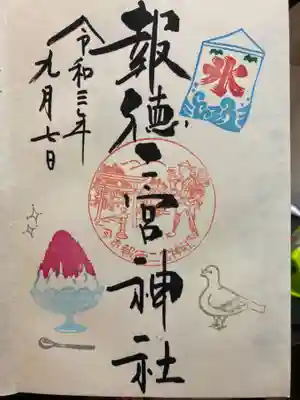 令和三年
九月七日
報徳二宮神社
氷